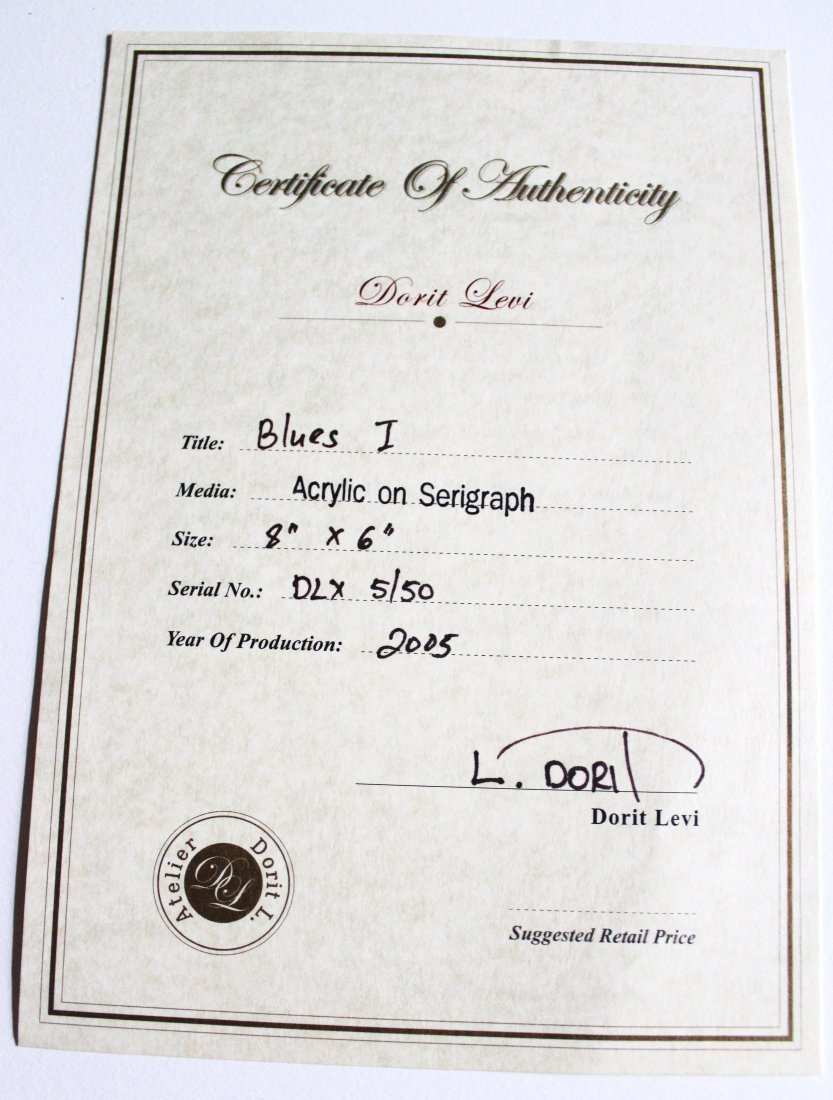 Certificate Of Authenticity
Dorit Levi
Title: Blues I
Media: Acrylic on Serigraph
Size: 8" x 6"
Serial No.: DLX 5/50
Year Of Production: 2005
L. DORIT
Dorit Levi
Atelier Dorit L.
DL
Suggested Retail Price